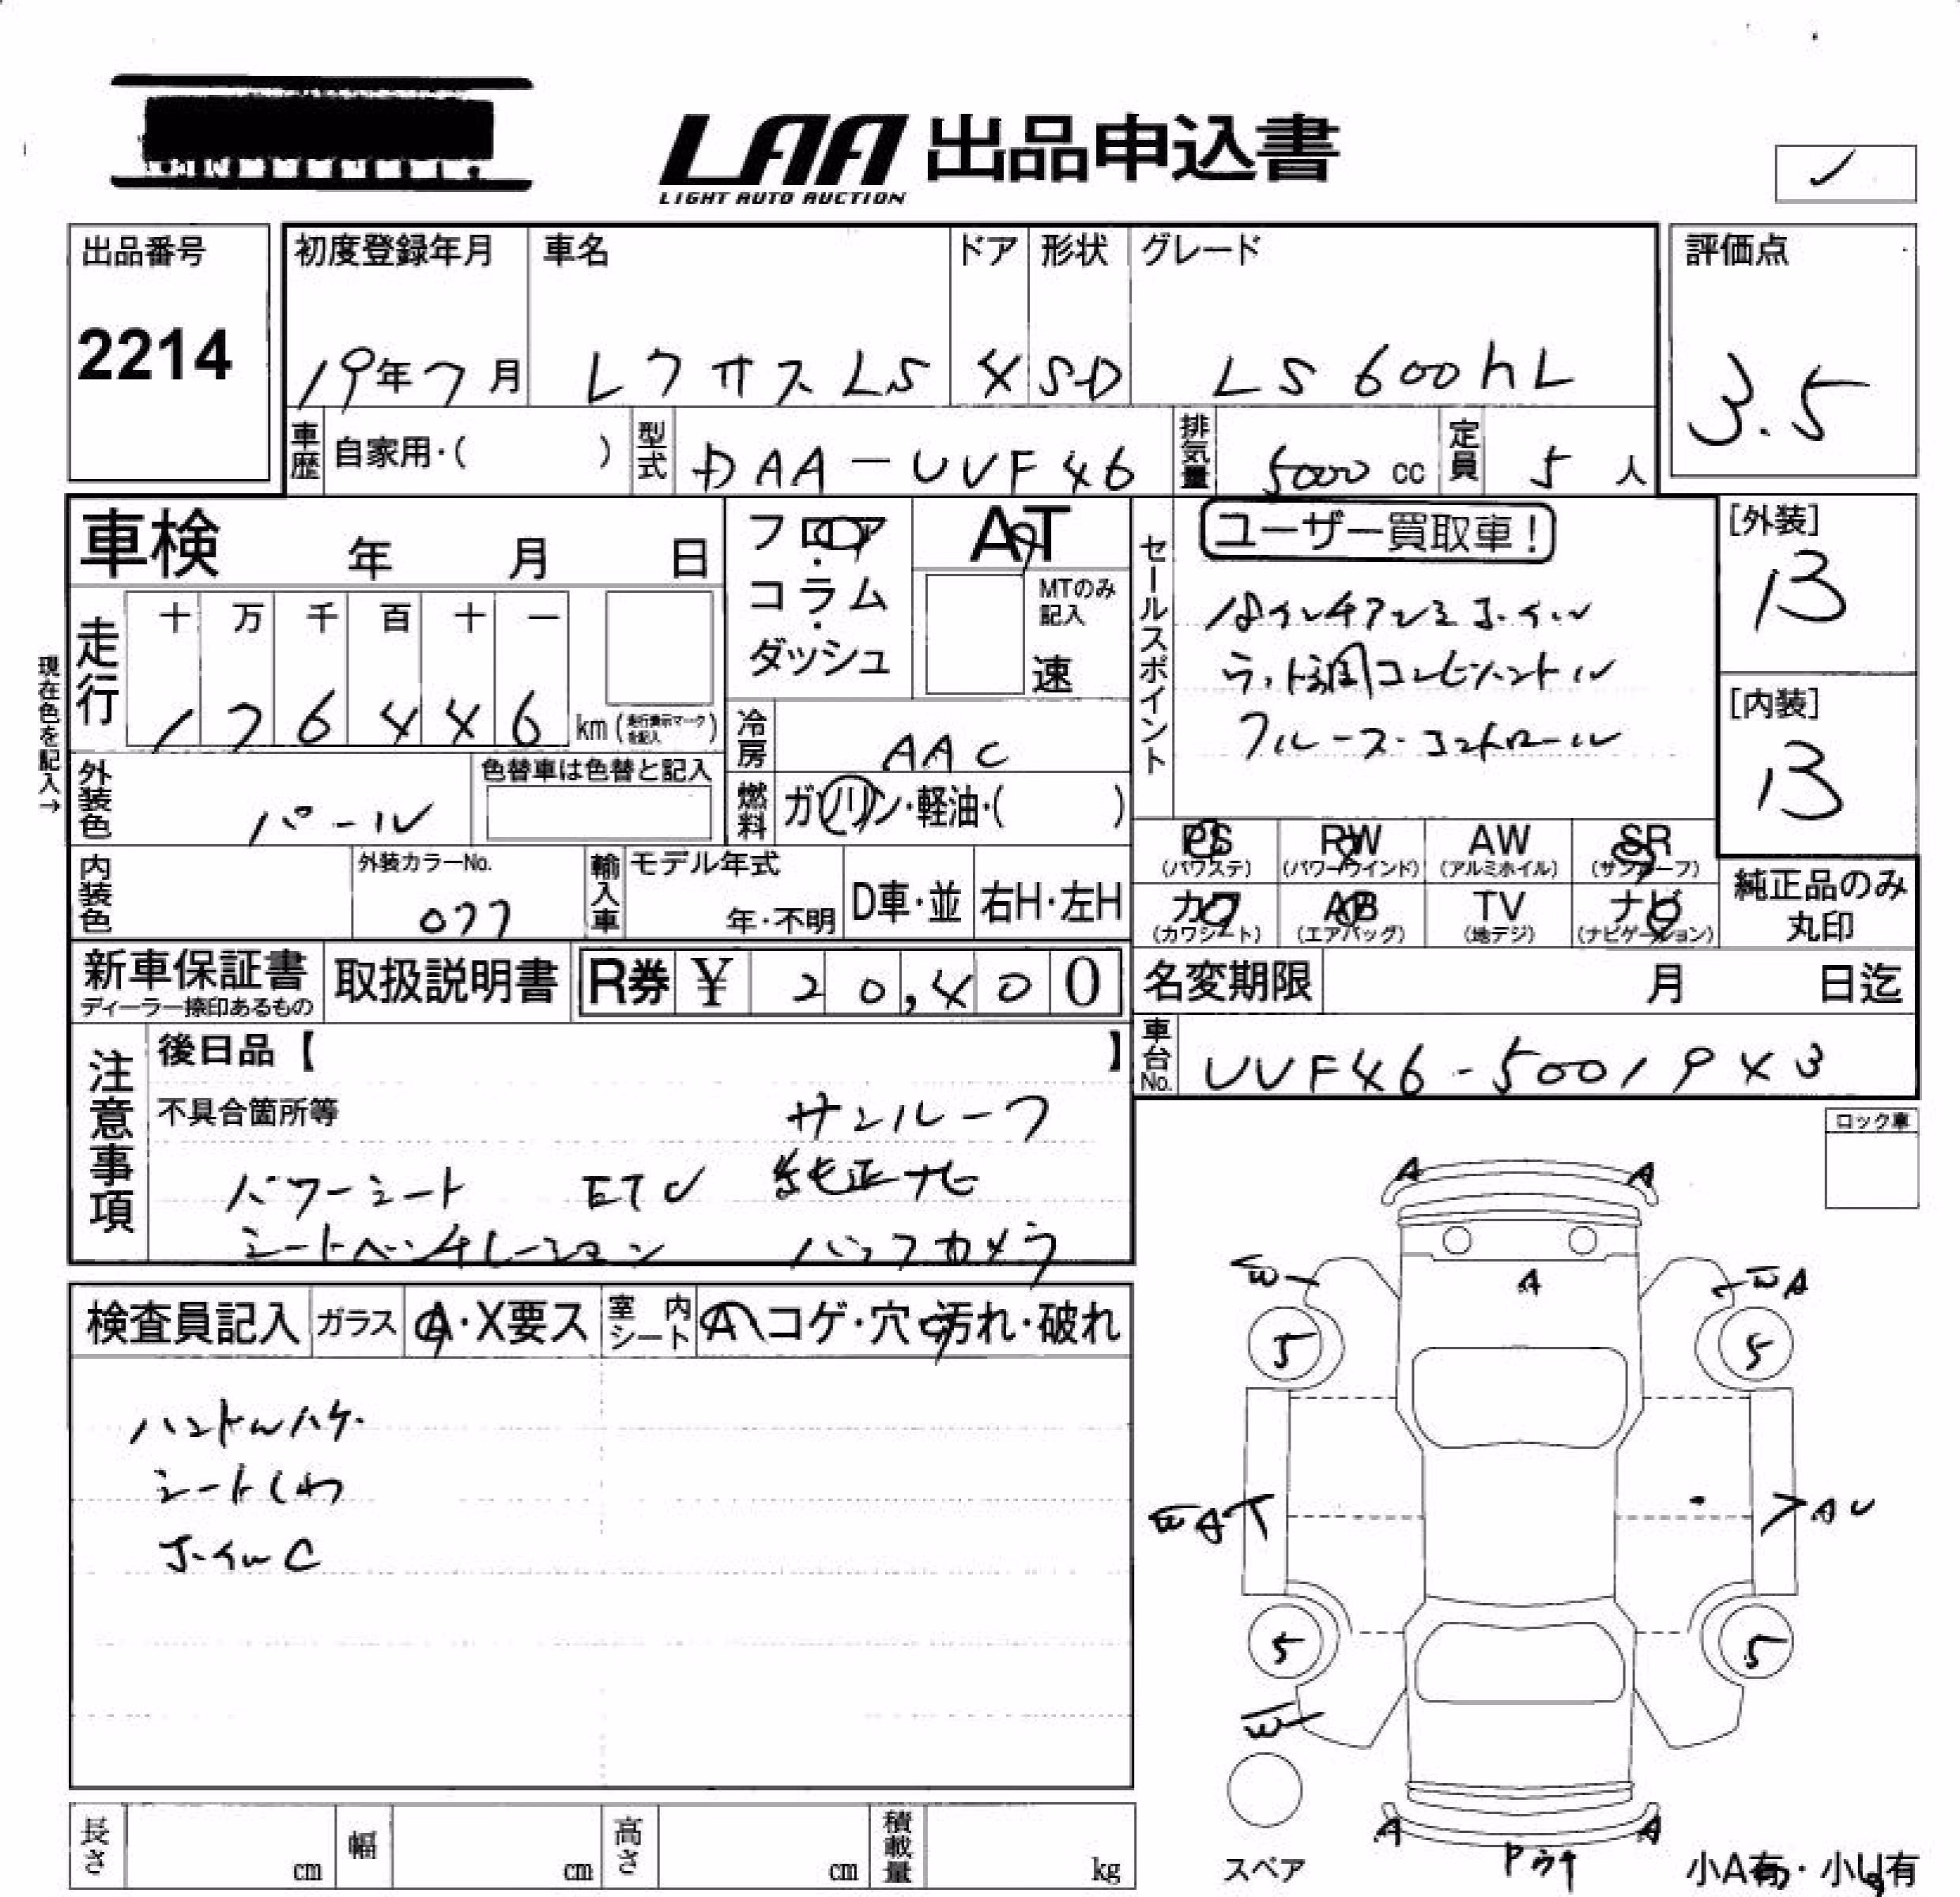 LAA 出品申込書
LIGHT AUTO AUCTION
出品番号
2214
初度登録年月 車名 ドア 形状 グレード
19年7月 レクサスLS 4 SD LS600hL
評価点
3.5
車歴 自家用・( ) 型式 DAA-UVF46 排気量 5000 cc 定員 5 人
車検 年 月 日
フロア・コラム・ダッシュ
AT
MTのみ記入
速
セールスポイント
ユーザー買取車!
18インチアルミホイル
ウッド調コンビハンドル
クルーズコントロール
[外装]
B
[内装]
B
現在色を記入→
走行 十 万 千 百 十 一
176446 km (走行表示マークを記入)
冷房 AAC
外装色 パール
色替車は色替と記入
燃料 ガソリン・軽油・( )
内装色
外装カラーNo.
077
輸入車 モデル年式
年・不明
D車・並 右H・左H
PS (パワステ) PW (パワーウインド) AW (アルミホイル) SR (サンルーフ)
カワ (カワシート) AB (エアバッグ) TV (地デジ) ナビ (ナビゲーション)
純正品のみ丸印
新車保証書
ディーラー捺印あるもの
取扱説明書
R券 ¥ 20,400
名変期限 月 日迄
車台No. UVF46-5001943
注意事項
後日品【 】
不具合箇所等 サンルーフ
パワーシート ETC 純正ナビ
シートベンチレーション バックカメラ
ロック車
検査員記入 ガラス A・X要ス 室内シート A コゲ・穴・汚れ・破れ
ハンドルハゲ
シートしわ
ホイルC
A A
W A W A
5 5
W A A U
5 5
W
A A
スペア
Pウチ
小A有・小U有
長さ cm 幅 cm 高さ cm 積載量 kg